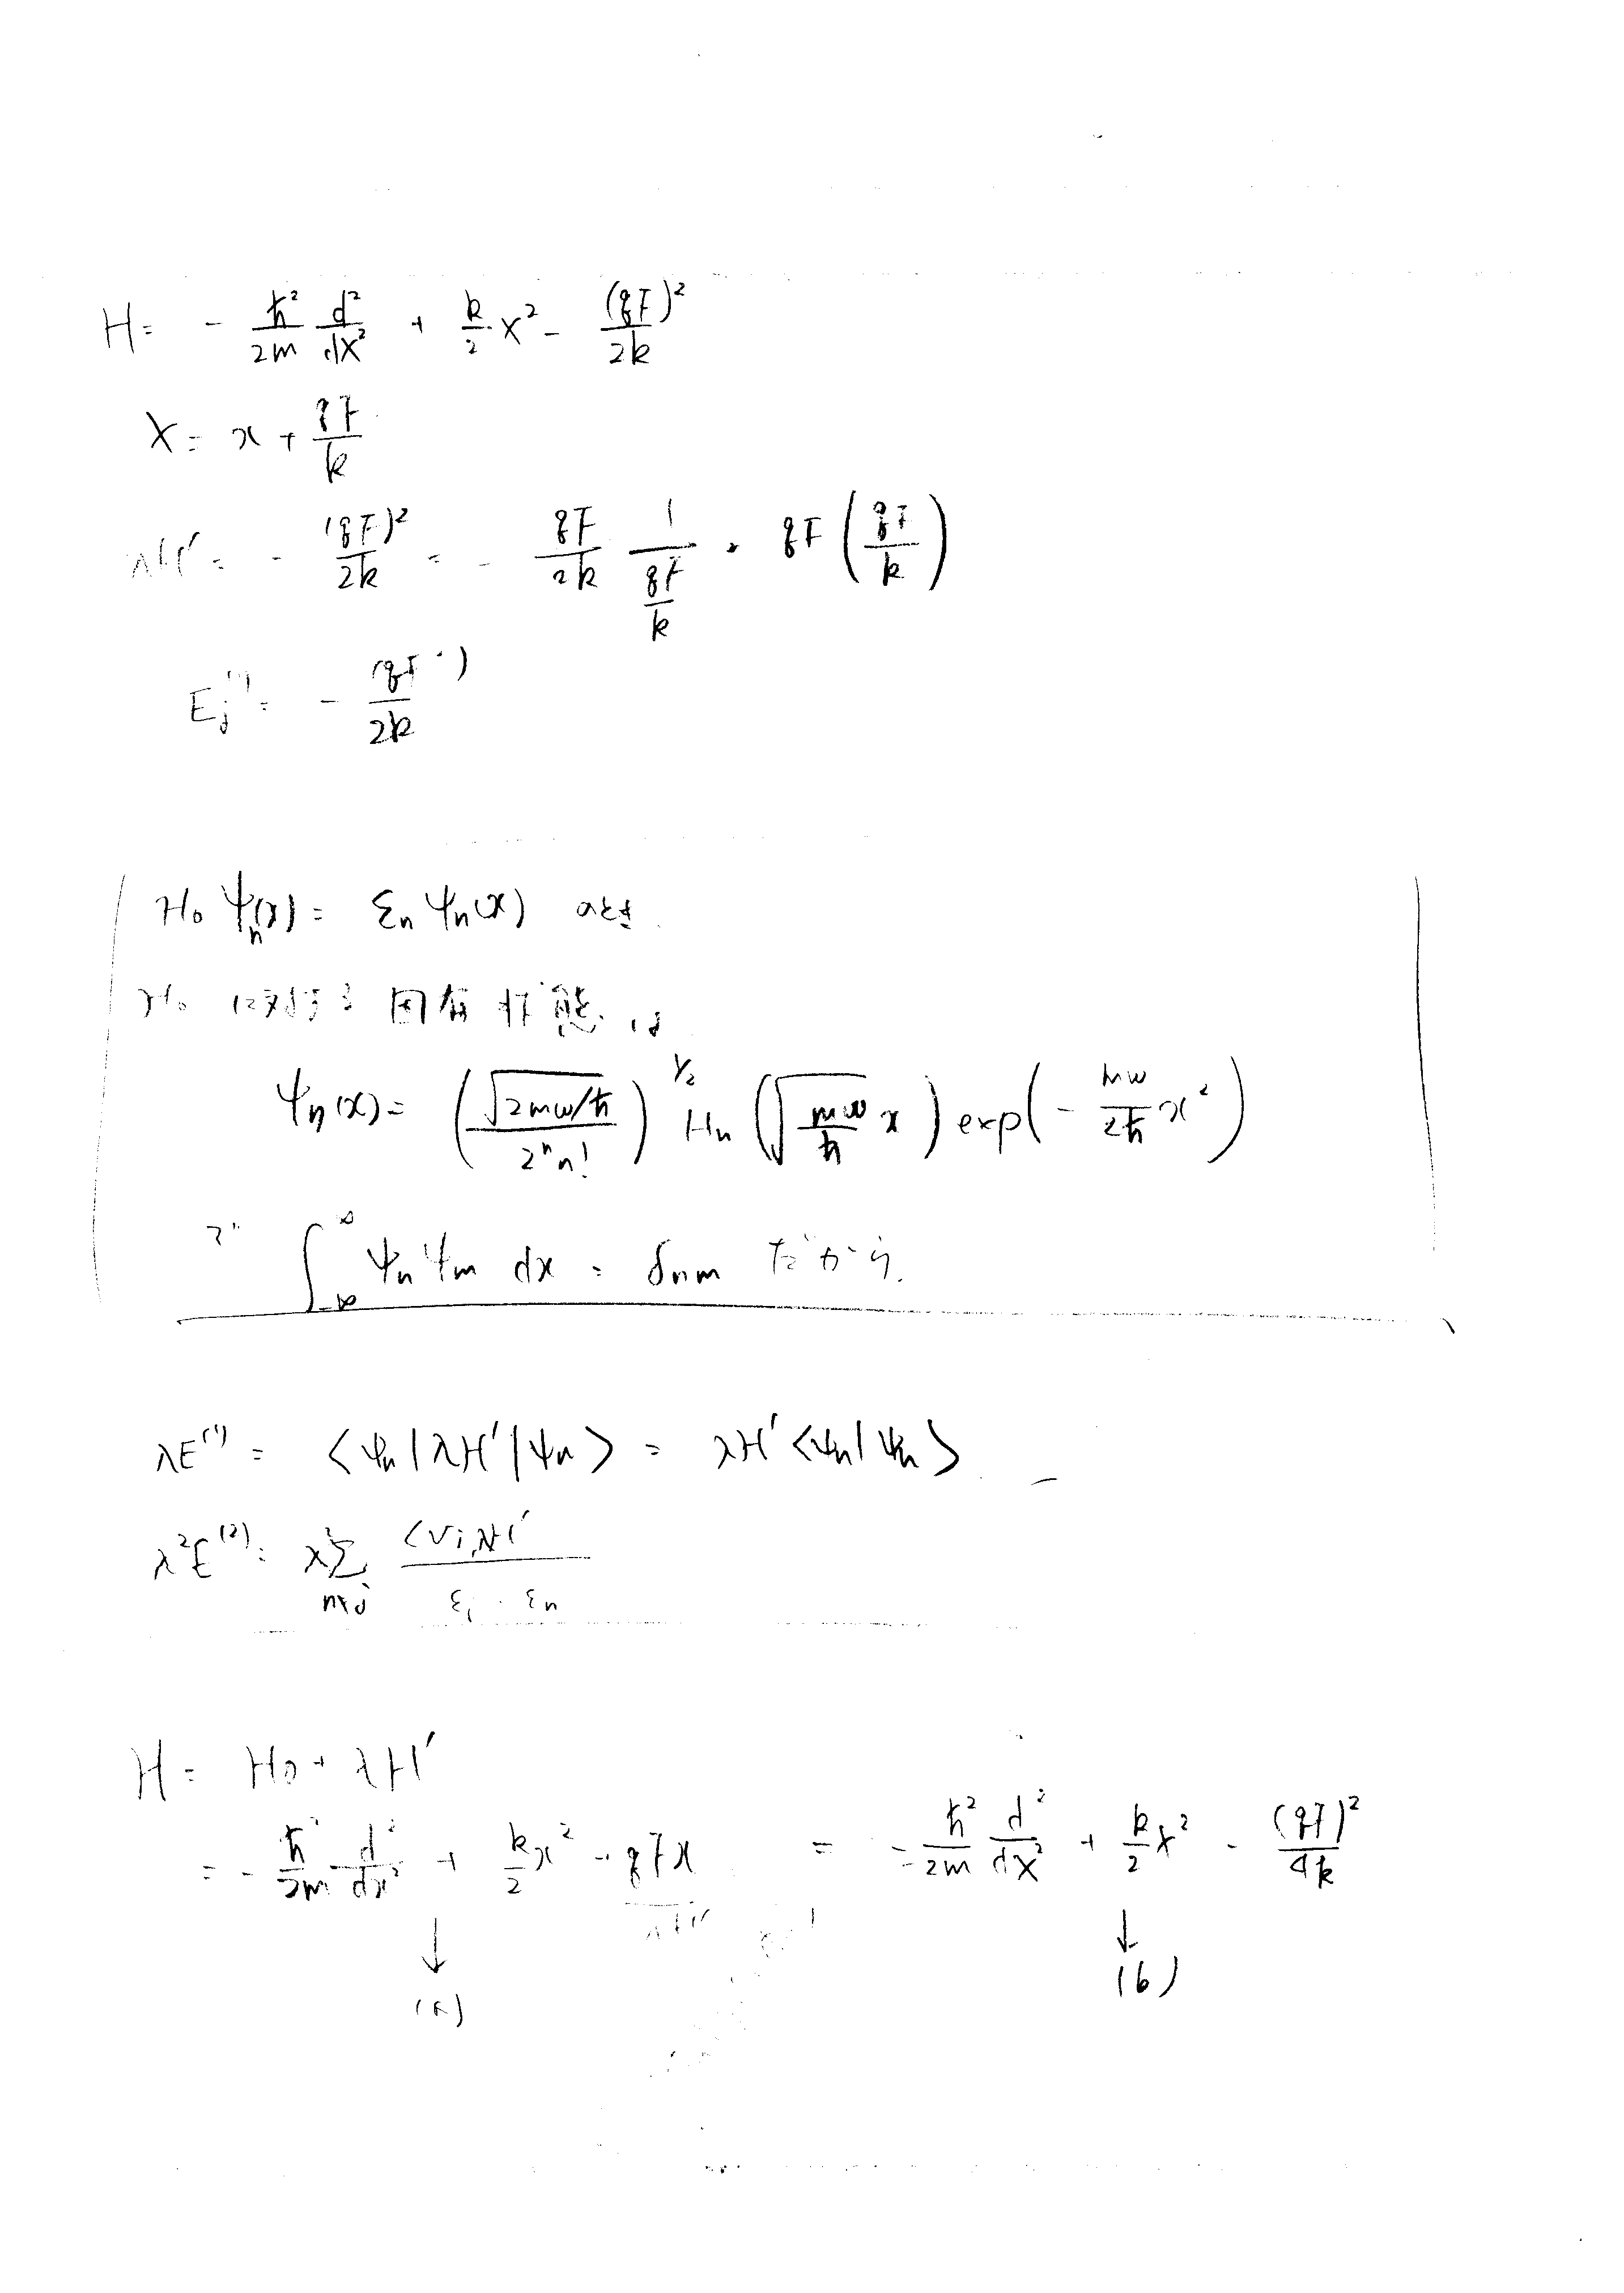 H = - ħ²/2m d²/dX² + k/2 X² - (qF)²/2k
X = x + qF/k
λH' = - (qF)²/2k = - qF/2k 1/(qF/k) · qF (qF/k)
Ej⁽¹⁾ = - (qF)/2k
H₀ ψn(x) = εn ψn(x) のとき
H₀ に対する 固有状態は
ψn(x) = (√(2mω/ħ)/2ⁿn!)^1/2 Hn (√(mω/ħ) x) exp(- mω/2ħ x²)
で ∫_{-∞}^{∞} ψn ψm dx = δnm だから.
λE⁽¹⁾ = <ψn|λH'|ψn> = λH' <ψn|ψn>
λ²E⁽²⁾ = λ² Σ_{n≠j}
H = H₀ + λH'
= - ħ²/2m d²/dx² + k/2 x² - qFx = - ħ²/2m d²/dX² + k/2 X² - (qF)²/4k
λH'
↓ ↓
(b)